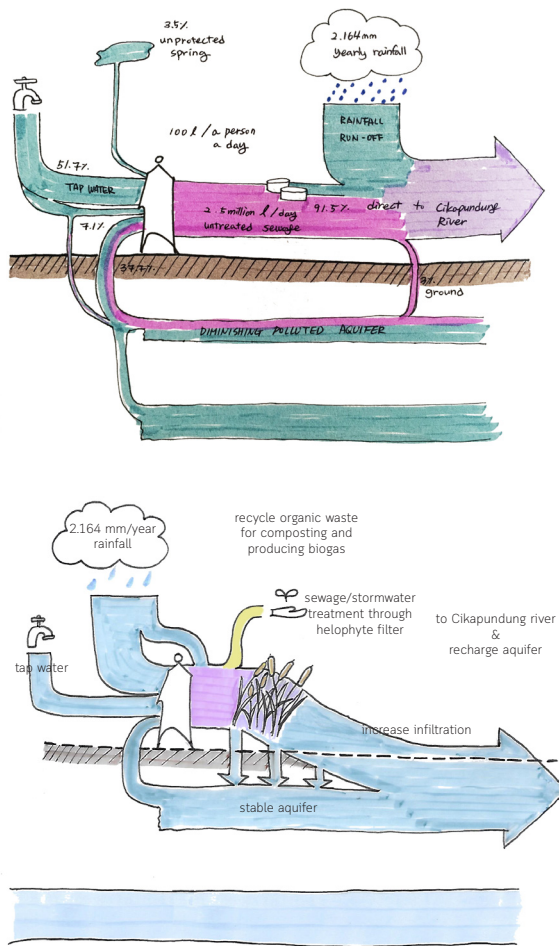 3.5%
unprotected
spring
2.164mm
Yearly rainfall
100 l / a person
a day
RAINFALL
RUN-OFF
51.7%
TAP WATER
7.1%
2.5 million l/day
untreated sewage
91.5% direct to Cikapundung
River
37.7%
ground
DIMINISHING POLLUTED AQUIFER
2.164 mm/year
rainfall
recycle organic waste
for composting and
producing biogas
sewage/stormwater
treatment through
helophyte filter
to Cikapundung river
&
recharge aquifer
tap water
increase infiltration
stable aquifer